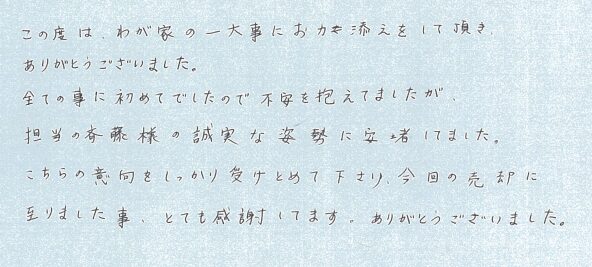 この度は、わが家の一大事にお力を添えをして頂き、
ありがとうございました。
全ての事に初めてでしたので不安を抱えてましたが、
担当の斉藤様の誠実な姿勢に安堵してました。
こちらの意向をしっかり受けとめて下さり、今回の売却に
至りました事、とても感謝してます。ありがとうございました。